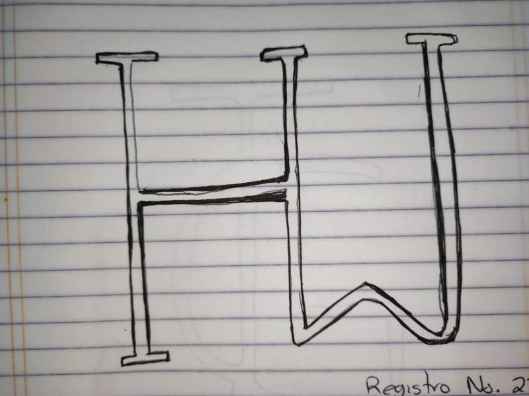 HW
Registro No. 2